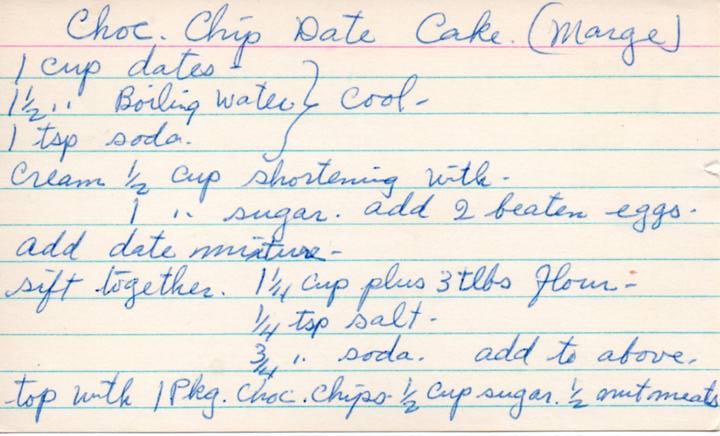 Choc. Chip Date Cake. (Marge)
1 cup dates -
1 1/2 " Boiling water } Cool -
1 tsp soda.
Cream 1/2 cup shortening with -
1 " sugar. add 2 beaten eggs.
add date mixture -
sift together. 1 1/4 cup plus 3 tlbs flour -
1/4 tsp salt -
3/4 " soda. add to above.
top with 1 Pkg. choc. chips - 1/2 cup sugar. 1/2 nut meats